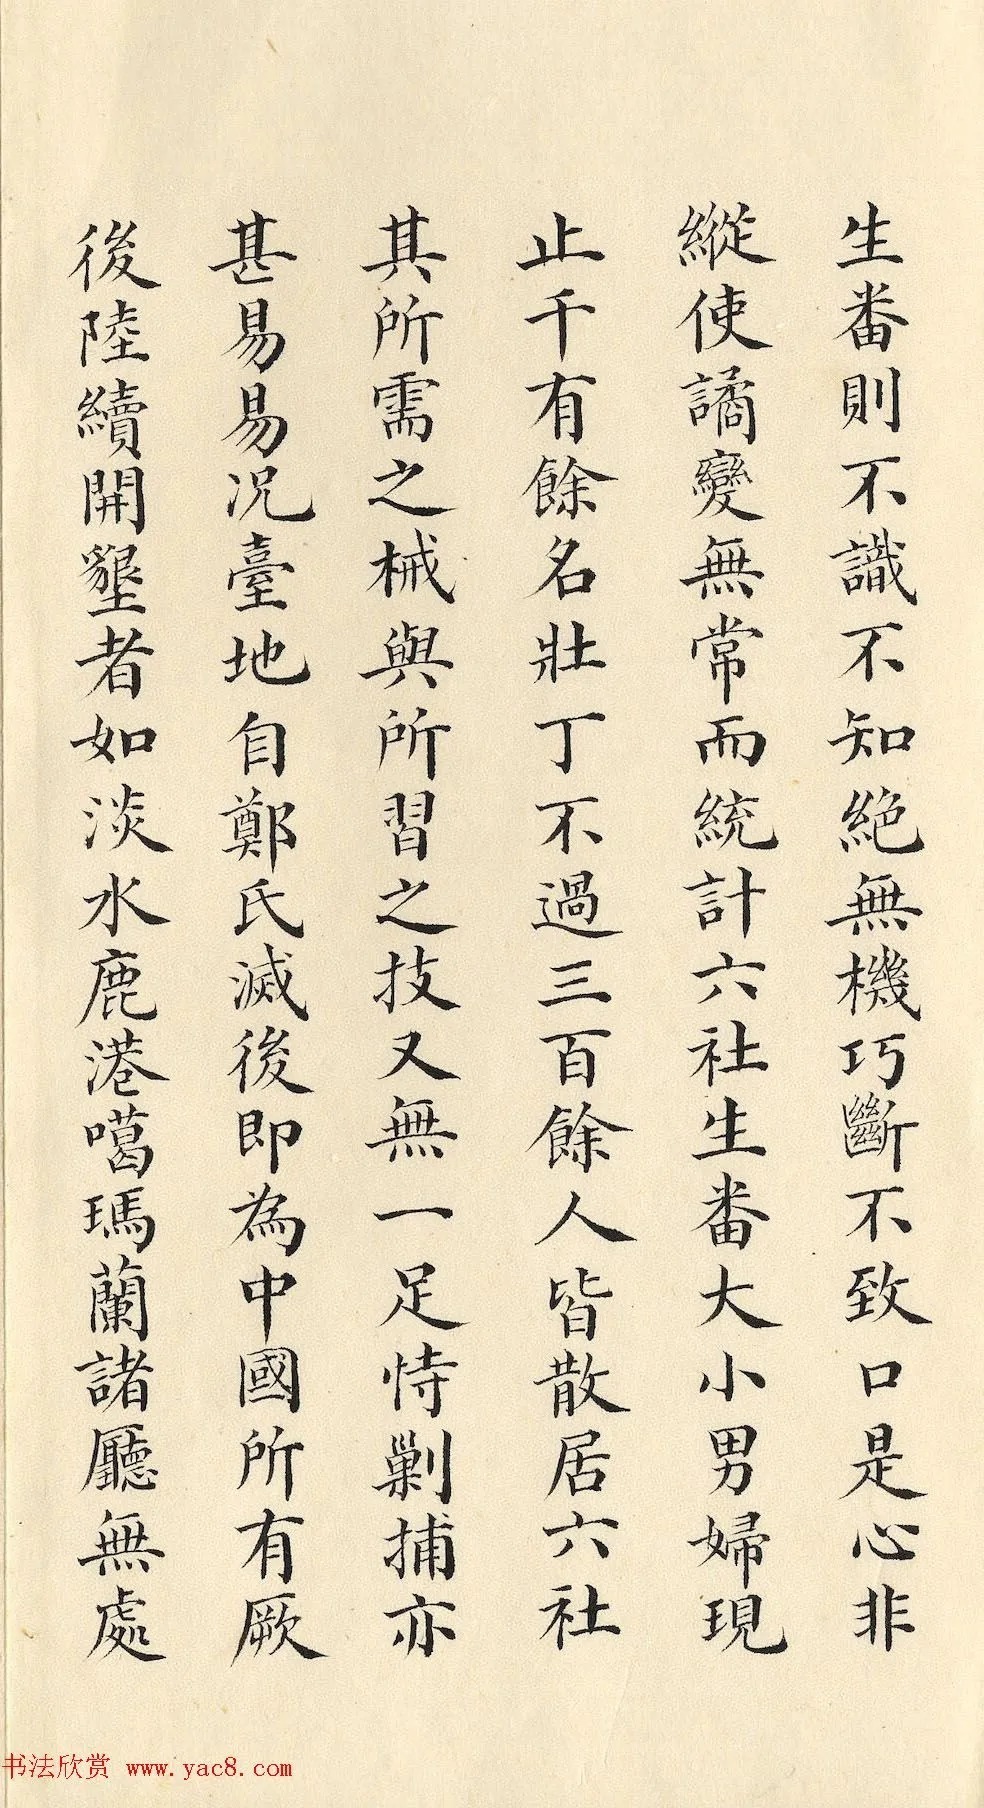 生番則不識不知絶無機巧斷不致口是心非
縱使譎變無常而統計六社生番大小男婦現
止千有餘名壯丁不過三百餘人皆散居六社
其所需之械與所習之技又無一足恃剿捕亦
甚易易况臺地自鄭氏滅後即為中國所有厥
後陸續開墾者如淡水鹿港噶瑪蘭諸廳無處
书法欣赏 www.yac8.com